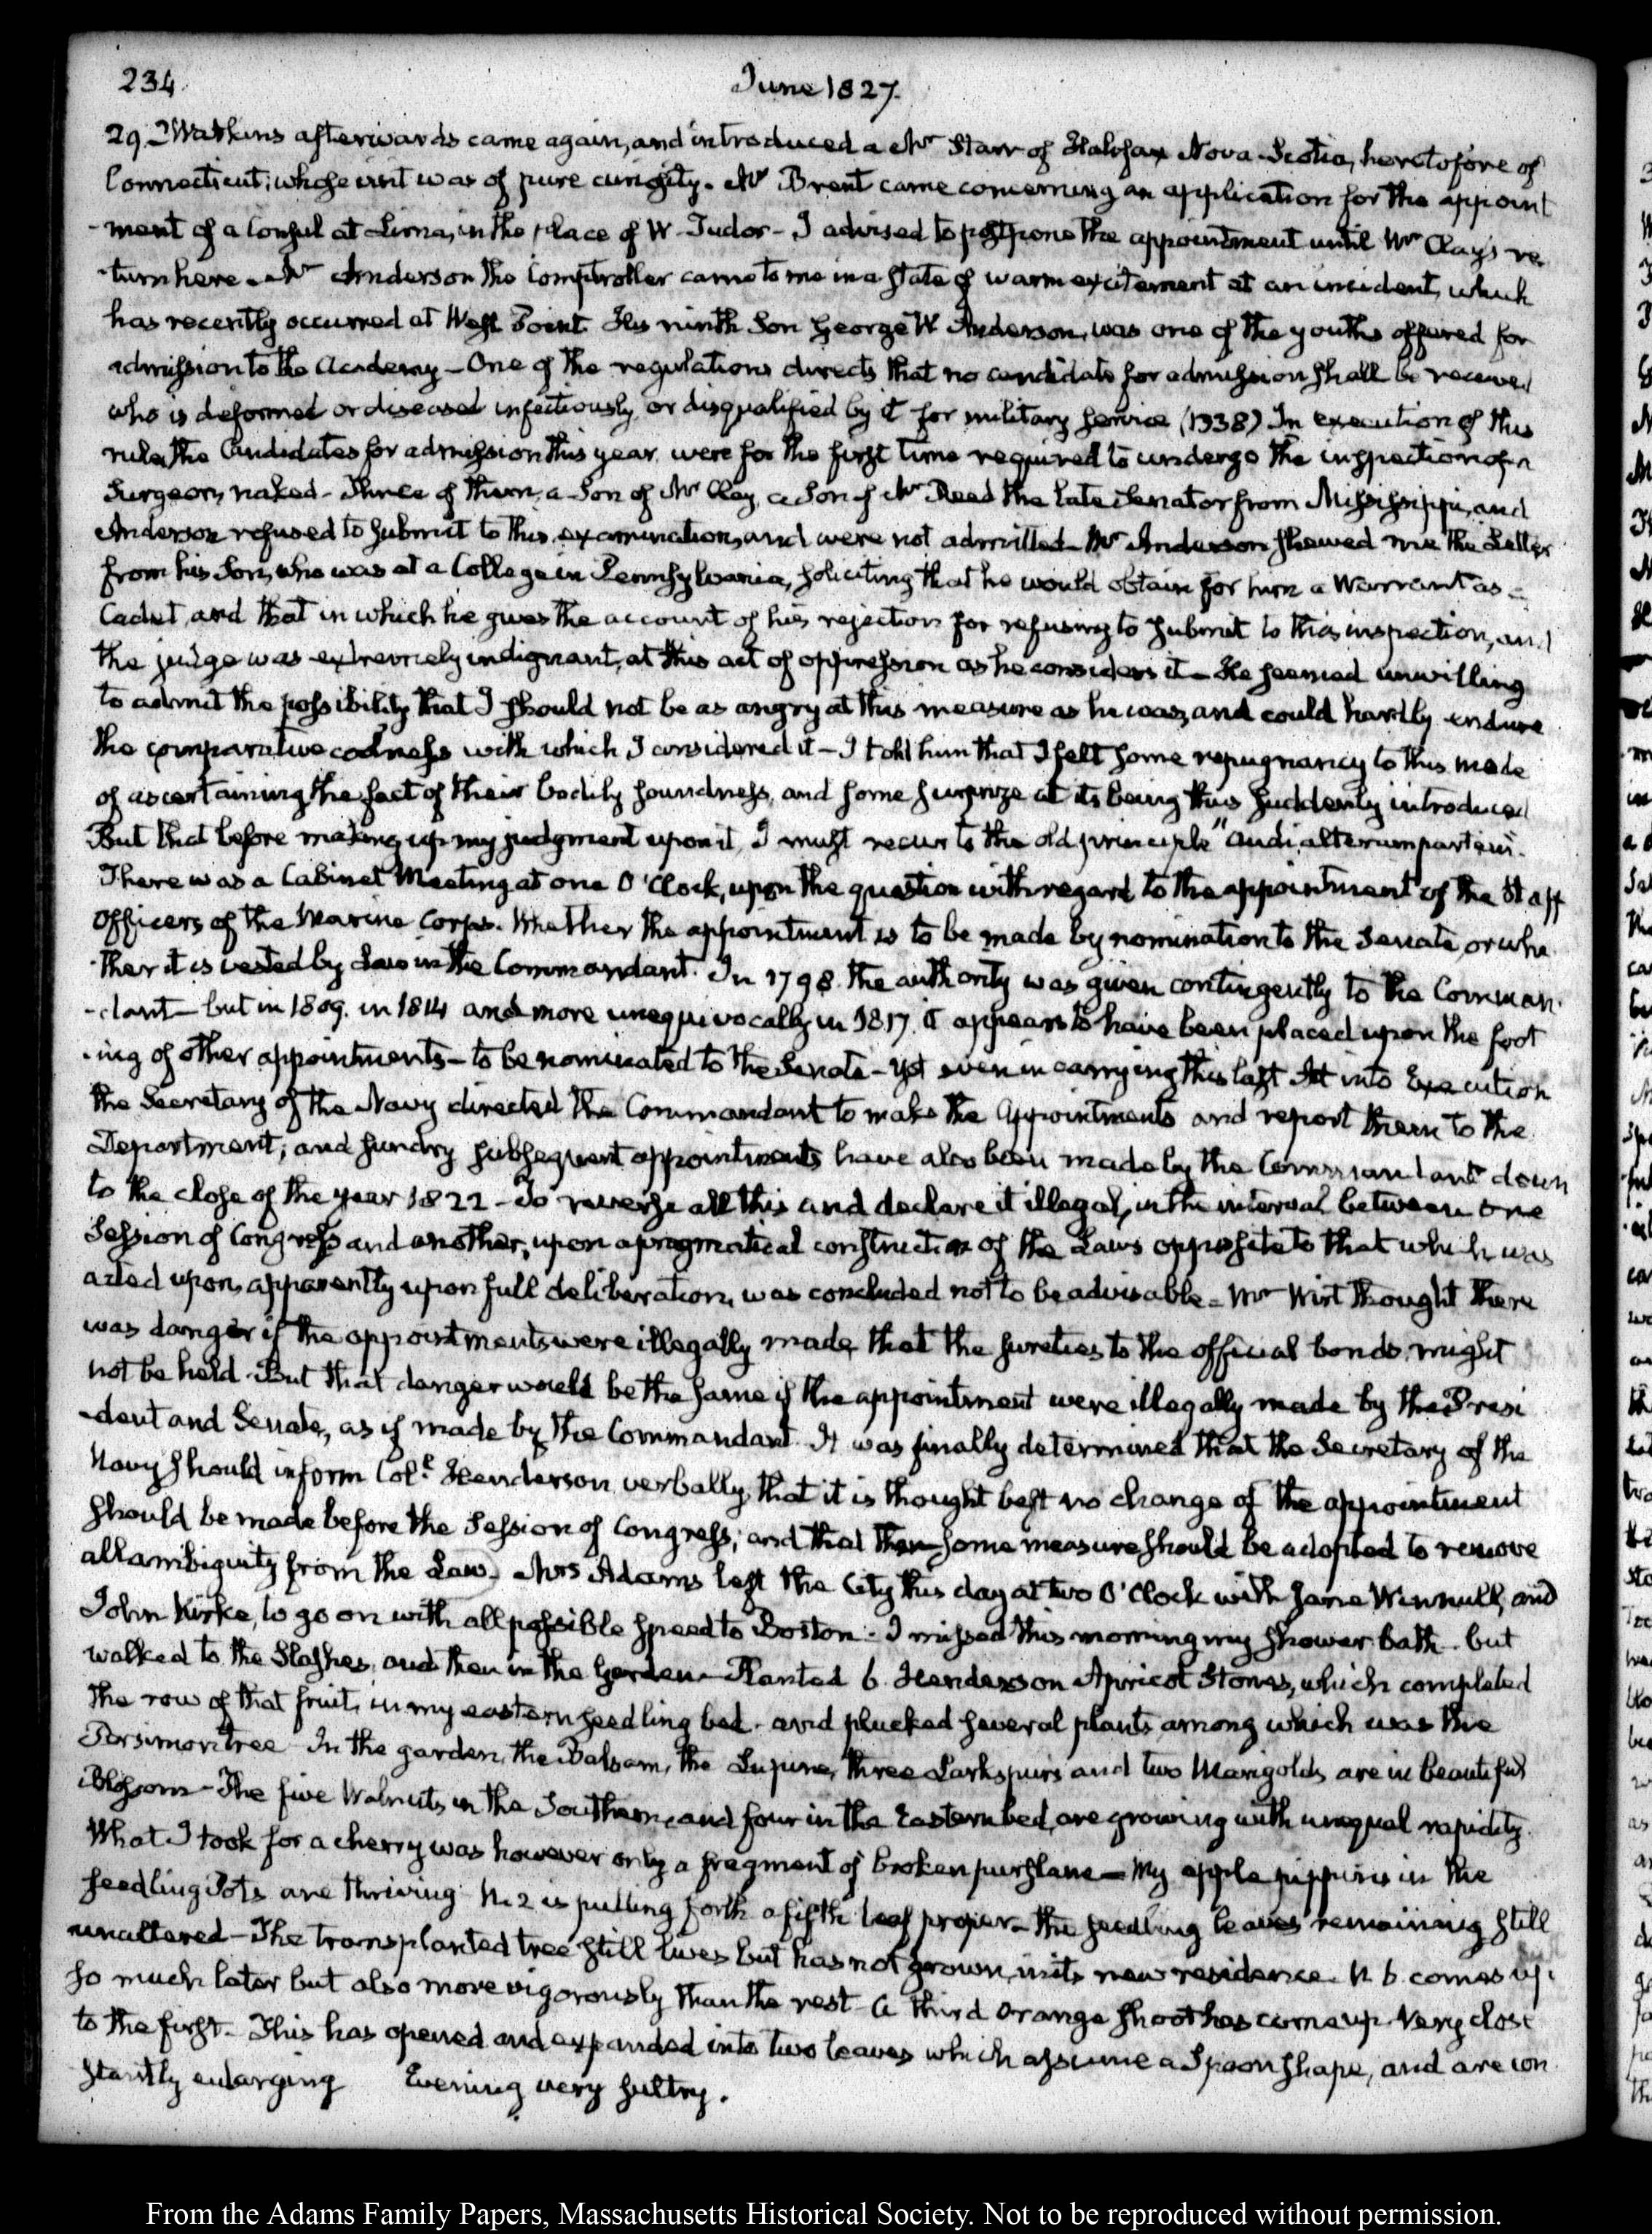 234
June 1827.
29. Watkins afterwards came again, and introduced a Mr Starr of Halifax Nova-Scotia, heretofore of
Connecticut; whose visit was of pure curiosity. Mr Brent came concerning an application for the appoint
-ment of a Consul at Lima, in the place of W. Tudor - I advised to postpone the appointment until Mr Clay's re
-turn here. Mr Anderson the Comptroller came to me in a state of warm excitement at an incident, which
has recently occurred at West Point. His ninth Son George W Anderson, was one of the youths offered for
admission to the Academy - One of the regulations directs that no candidate for admission shall be received
who is deformed or diseased infectiously, or disqualified by it for military service (1338) In execution of this
rule, the Candidates for admission this year, were for the first time required to undergo the inspection of a
Surgeon, naked - Three of them, a Son of Mr Clay, a Son of Mr Reed the late Senator from Mississippi, and
Anderson refused to submit to this examination, and were not admitted - Mr Anderson shewed me the Letter
from his Son, who was at a College in Pennsylvania, soliciting that he would obtain for him a Warrant as a
Cadet, and that in which he gives the account of his rejection for refusing to submit to this inspection, and
the judge was extremely indignant, at this act of oppression as he considers it - He seemed unwilling
to admit the possibility that I should not be as angry at this measure as he was, and could hardly endure
the comparative coolness with which I considered it - I told him that I felt some repugnancy to this mode
of ascertaining the fact of their bodily soundness, and some surprize at its being thus suddenly introduced
But that before making up my judgment upon it, I must recur to the old principle "audi alteram partem.
There was a Cabinet Meeting at one O'Clock, upon the question with regard to the appointment of the Staff
Officers of the Marine Corps. Whether the appointment is to be made by nomination to the Senate, or whe
-ther it is vested by Law in the Commandant. In 1798. the authority was given contingently to the Comman
-dant - but in 1809. in 1814 and more unequivocally in 1817. it appears to have been placed upon the foot
-ing of other appointments - to be nominated to the Senate - yet even in carrying this last Act into Execution
the Secretary of the Navy directed the Commandant to make the Appointments and report them to the
Department; and sundry subsequent appointments have also been made by the Commandant down
to the close of the year 1822 - To reverse all this and declare it illegal, in the interval between one
Session of Congress and another, upon a pragmatical construction of the Laws opposite to that which was
acted upon, apparently upon full deliberation, was concluded not to be advisable - Mr Wirt thought there
was danger if the appointments were illegally made, that the sureties to the official bonds, might
not be held. But that danger would be the same if the appointment were illegally made by the Presi
-dent and Senate, as if made by the Commandant. It was finally determined that the Secretary of the
Navy should inform Coll Henderson verbally, that it is thought best no change of the appointment
should be made before the Session of Congress; and that then some measure should be adopted to remove
all ambiguity from the Law. Mrs Adams left the City this day at two O'Clock with Jane Winnull, and
John Kirke, to go on with all possible speed to Boston - I missed this morning my shower bath. but
walked to the Slashes, and then in the Garden - Planted 6. Henderson Apricot Stones, which completed
the row of that fruit, in my eastern seedling bed. and plucked several plants, among which was the
Persimon tree. In the garden, the Balsam, the Lupine, three Larkspurs and two Marigolds, are in beautiful
Blossom - The five Walnuts, in the Southern, and four in the Eastern bed, are growing with unequal rapidity.
What I took for a cherry was however only a fragment of broken purslane - My apple pippins in the
seedling Pots are thriving. N. 2 is putting forth a fifth leaf proper - the seedling leaves remaining still
unaltered - The transplanted tree still lives but has not grown, in its new residence. N 6. comes up
so much later but also more vigorously than the rest - A third orange shoot has come up. Very close
to the first. This has opened and expanded into two leaves which assume a Spoon shape, and are con
stantly enlarging Evening very sultry.
From the Adams Family Papers, Massachusetts Historical Society. Not to be reproduced without permission.